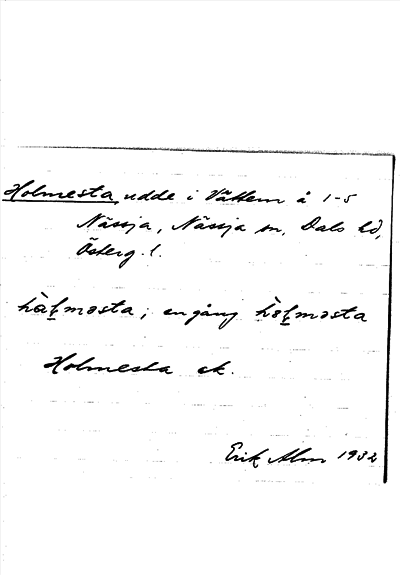 Holmesta, udde i Vättern å 1-5
Nässja, Nässja sn, Dals hd,
Österg. l.
hàḻməsta; en gång hòḻməsta
Holmesta ek.
Erik Alm 1932